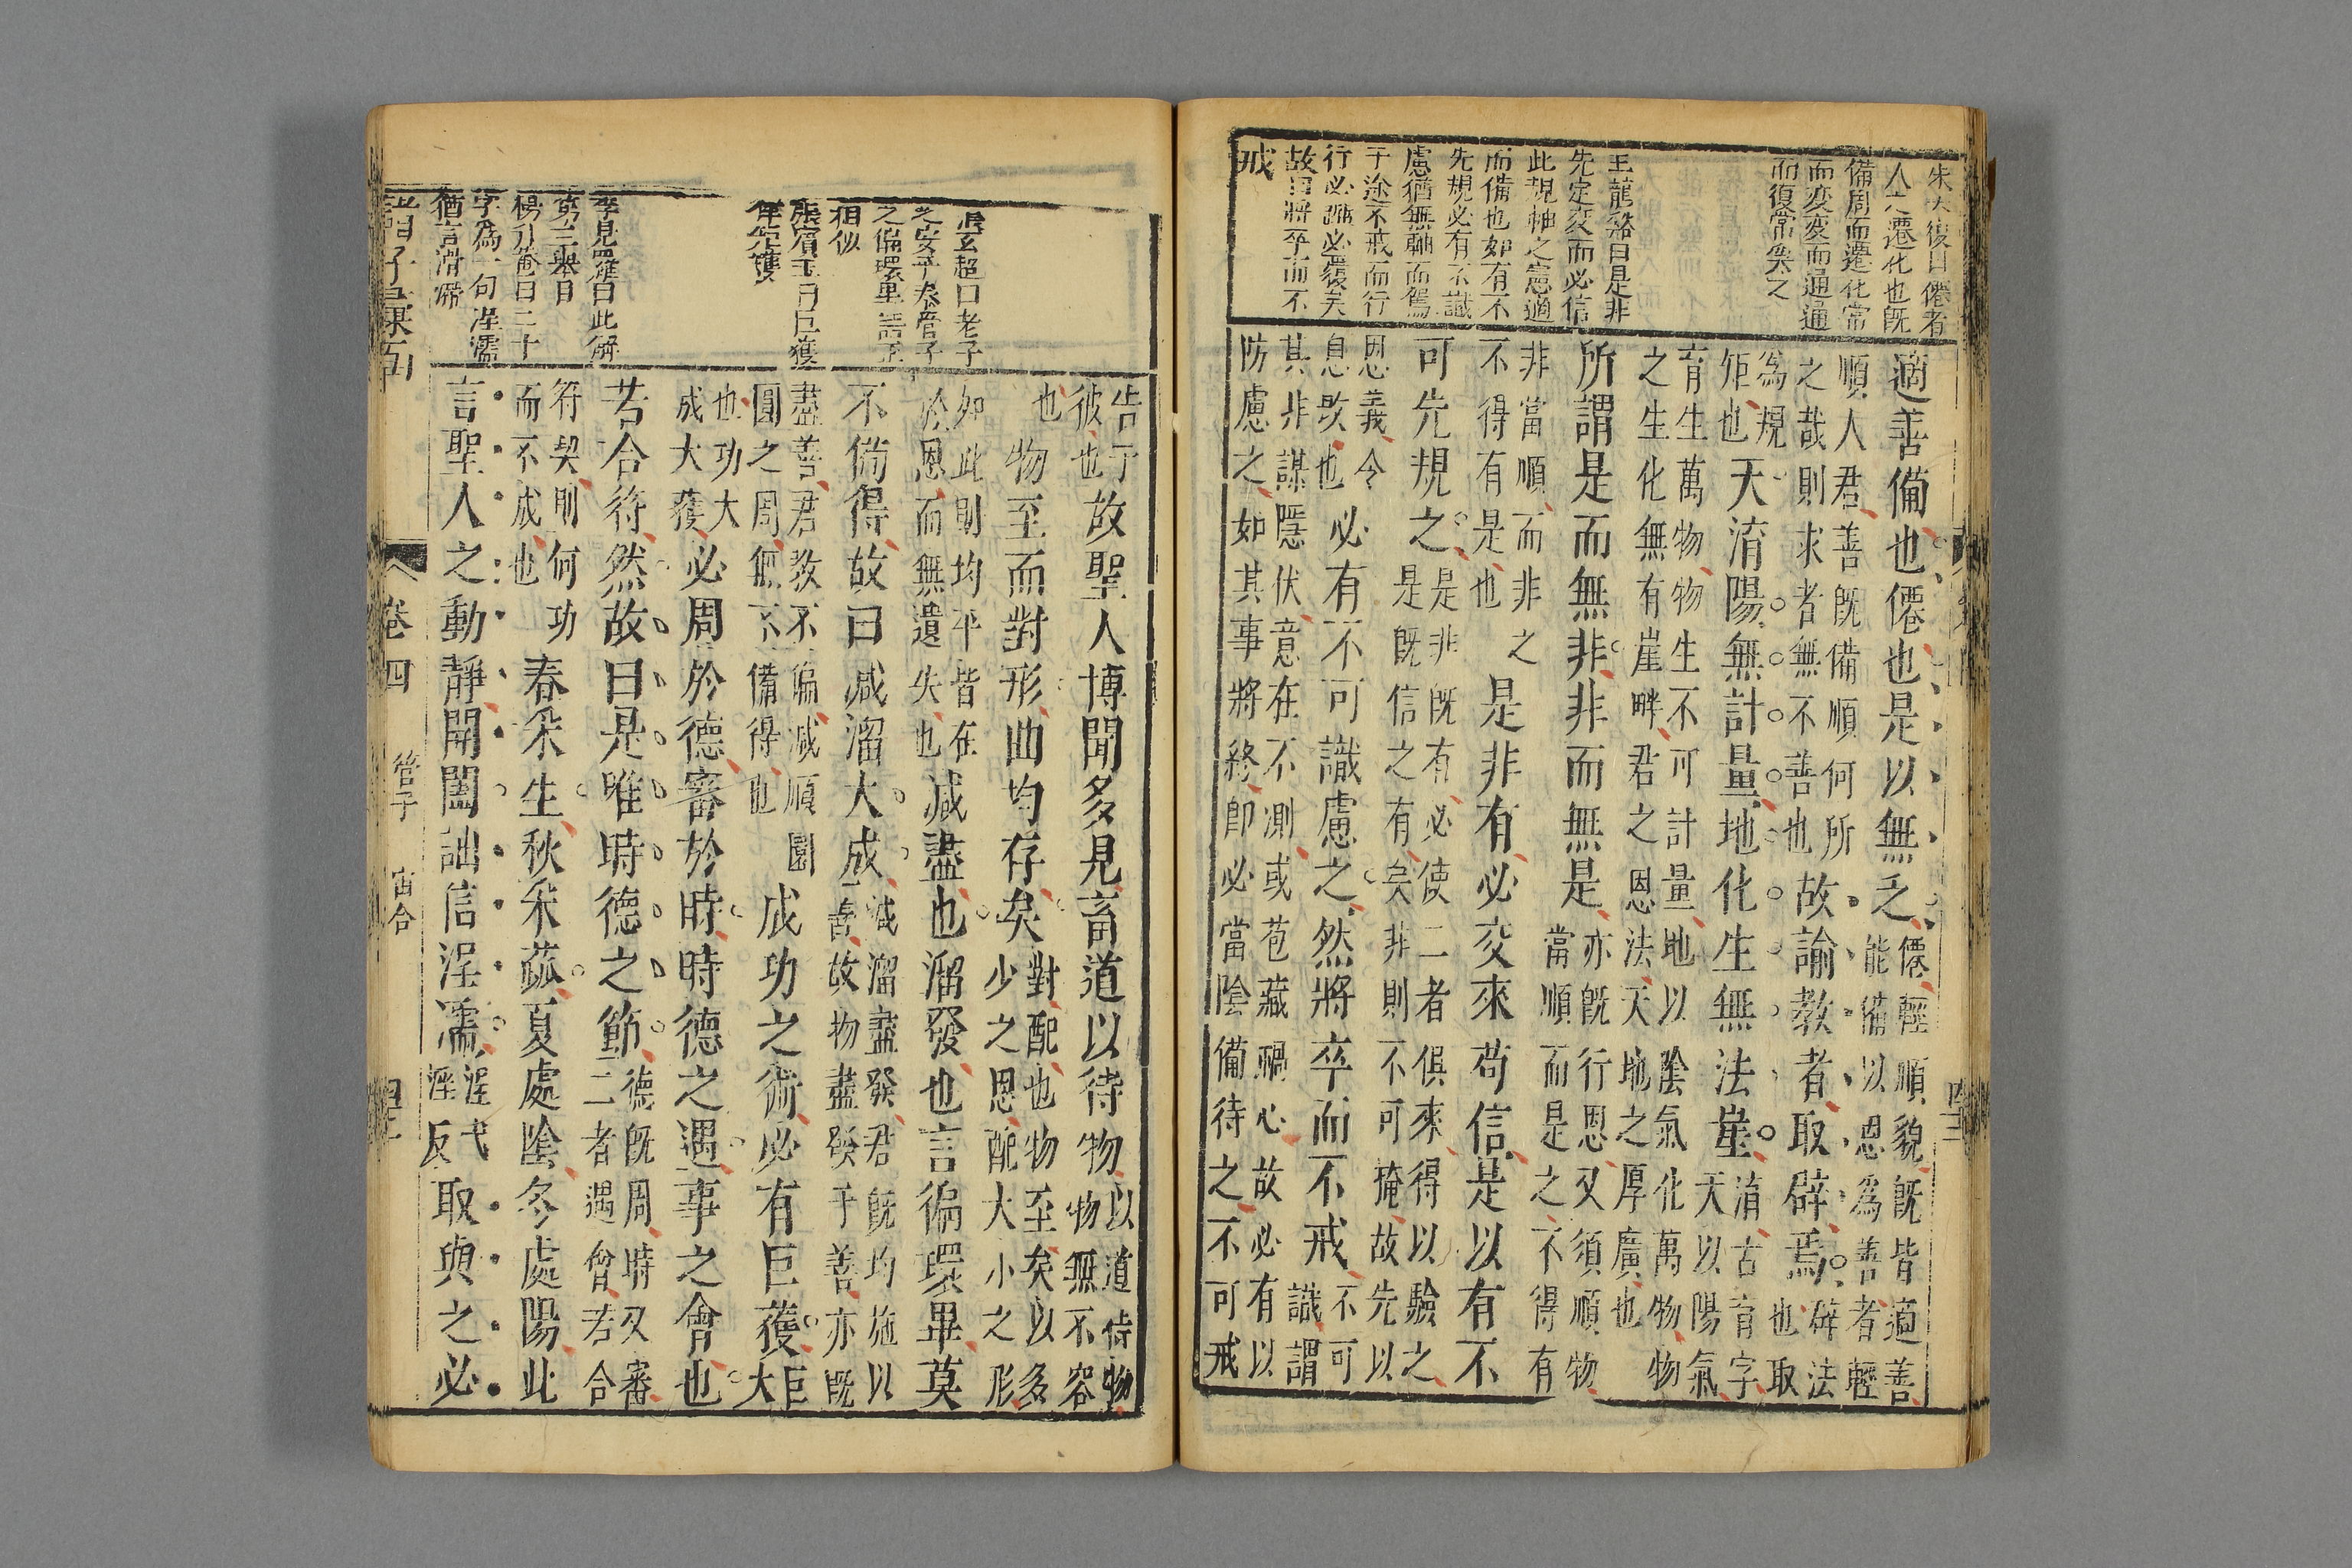 朱大復曰僊者
人之遷化也既
備周而遷化常
而変変而通通
而復常矣之
王龍谿曰是非
先定交而必信
此規軸之憲適
而備也如有不
先規必有不識
慮猶無軸而駕
于途不戒而行
行必蹶必覆矣
故曰將卒而不
戒
適善備也僊也是以無乏
僊輕順貌既皆適善
能備以恩為善者輕
順人君善既備順何所
之哉則求者無不善也
故諭教者取辟焉
辟法
也取
為規
矩也
天淯陽無計量地化生無法崖
淯古育字
天以陽氣
育生萬物物生不可計量地以陰氣化萬物物
之生化無有崖畔君之恩法天地之厚廣也
所謂是而無非非而無是
亦既行恩又須順物
當順而是之不得有
非當順而非之
不得有是也
是非有必交來苟信是以有不
可先規之
是非既有必使二者俱來得以驗之
是既信之有矣非則不可掩故先以
恩義令
息欺也
必有不可識慮之然將卒而不戒
不可
識謂
其非謀隱伏意在不測或苞藏禍心故必有以
防慮之如其事將終即必當陰備待之不可戒
告于
彼也
故聖人博聞多見畜道以待物
以道待物
物無不容
也
物至而對形曲均存矣
對配也物至矣以多
少之恩配大小之形
如此則均平皆在
於恩而無遺失也
減盡也溜發也言徧環畢莫
不備得故曰減溜大成
減溜盡發君既均施以
善故物盡發于善亦既
盡善君教不徧減順園
圓之周無不備得也
成功之術必有巨蒦
巨
大
也功大
成大蒦
必周於德審於時時德之遇事之會也
若合符然故曰是唯時德之節
德既周時又審
二者遇會若合
符契則何功
而不成也
春采生秋采蓏夏處陰冬處陽此
言聖人之動靜開闔詘信浧濡
浧弋
涇反
取與之必
張玄超曰老子
之安平泰管子
之徧環畢語正
相似
張賓王曰巨蒦
李見羅曰此解
第三舉目
楊升菴曰二十
字為一句浧濡
猶言滑滯
卷四
管子
宙合